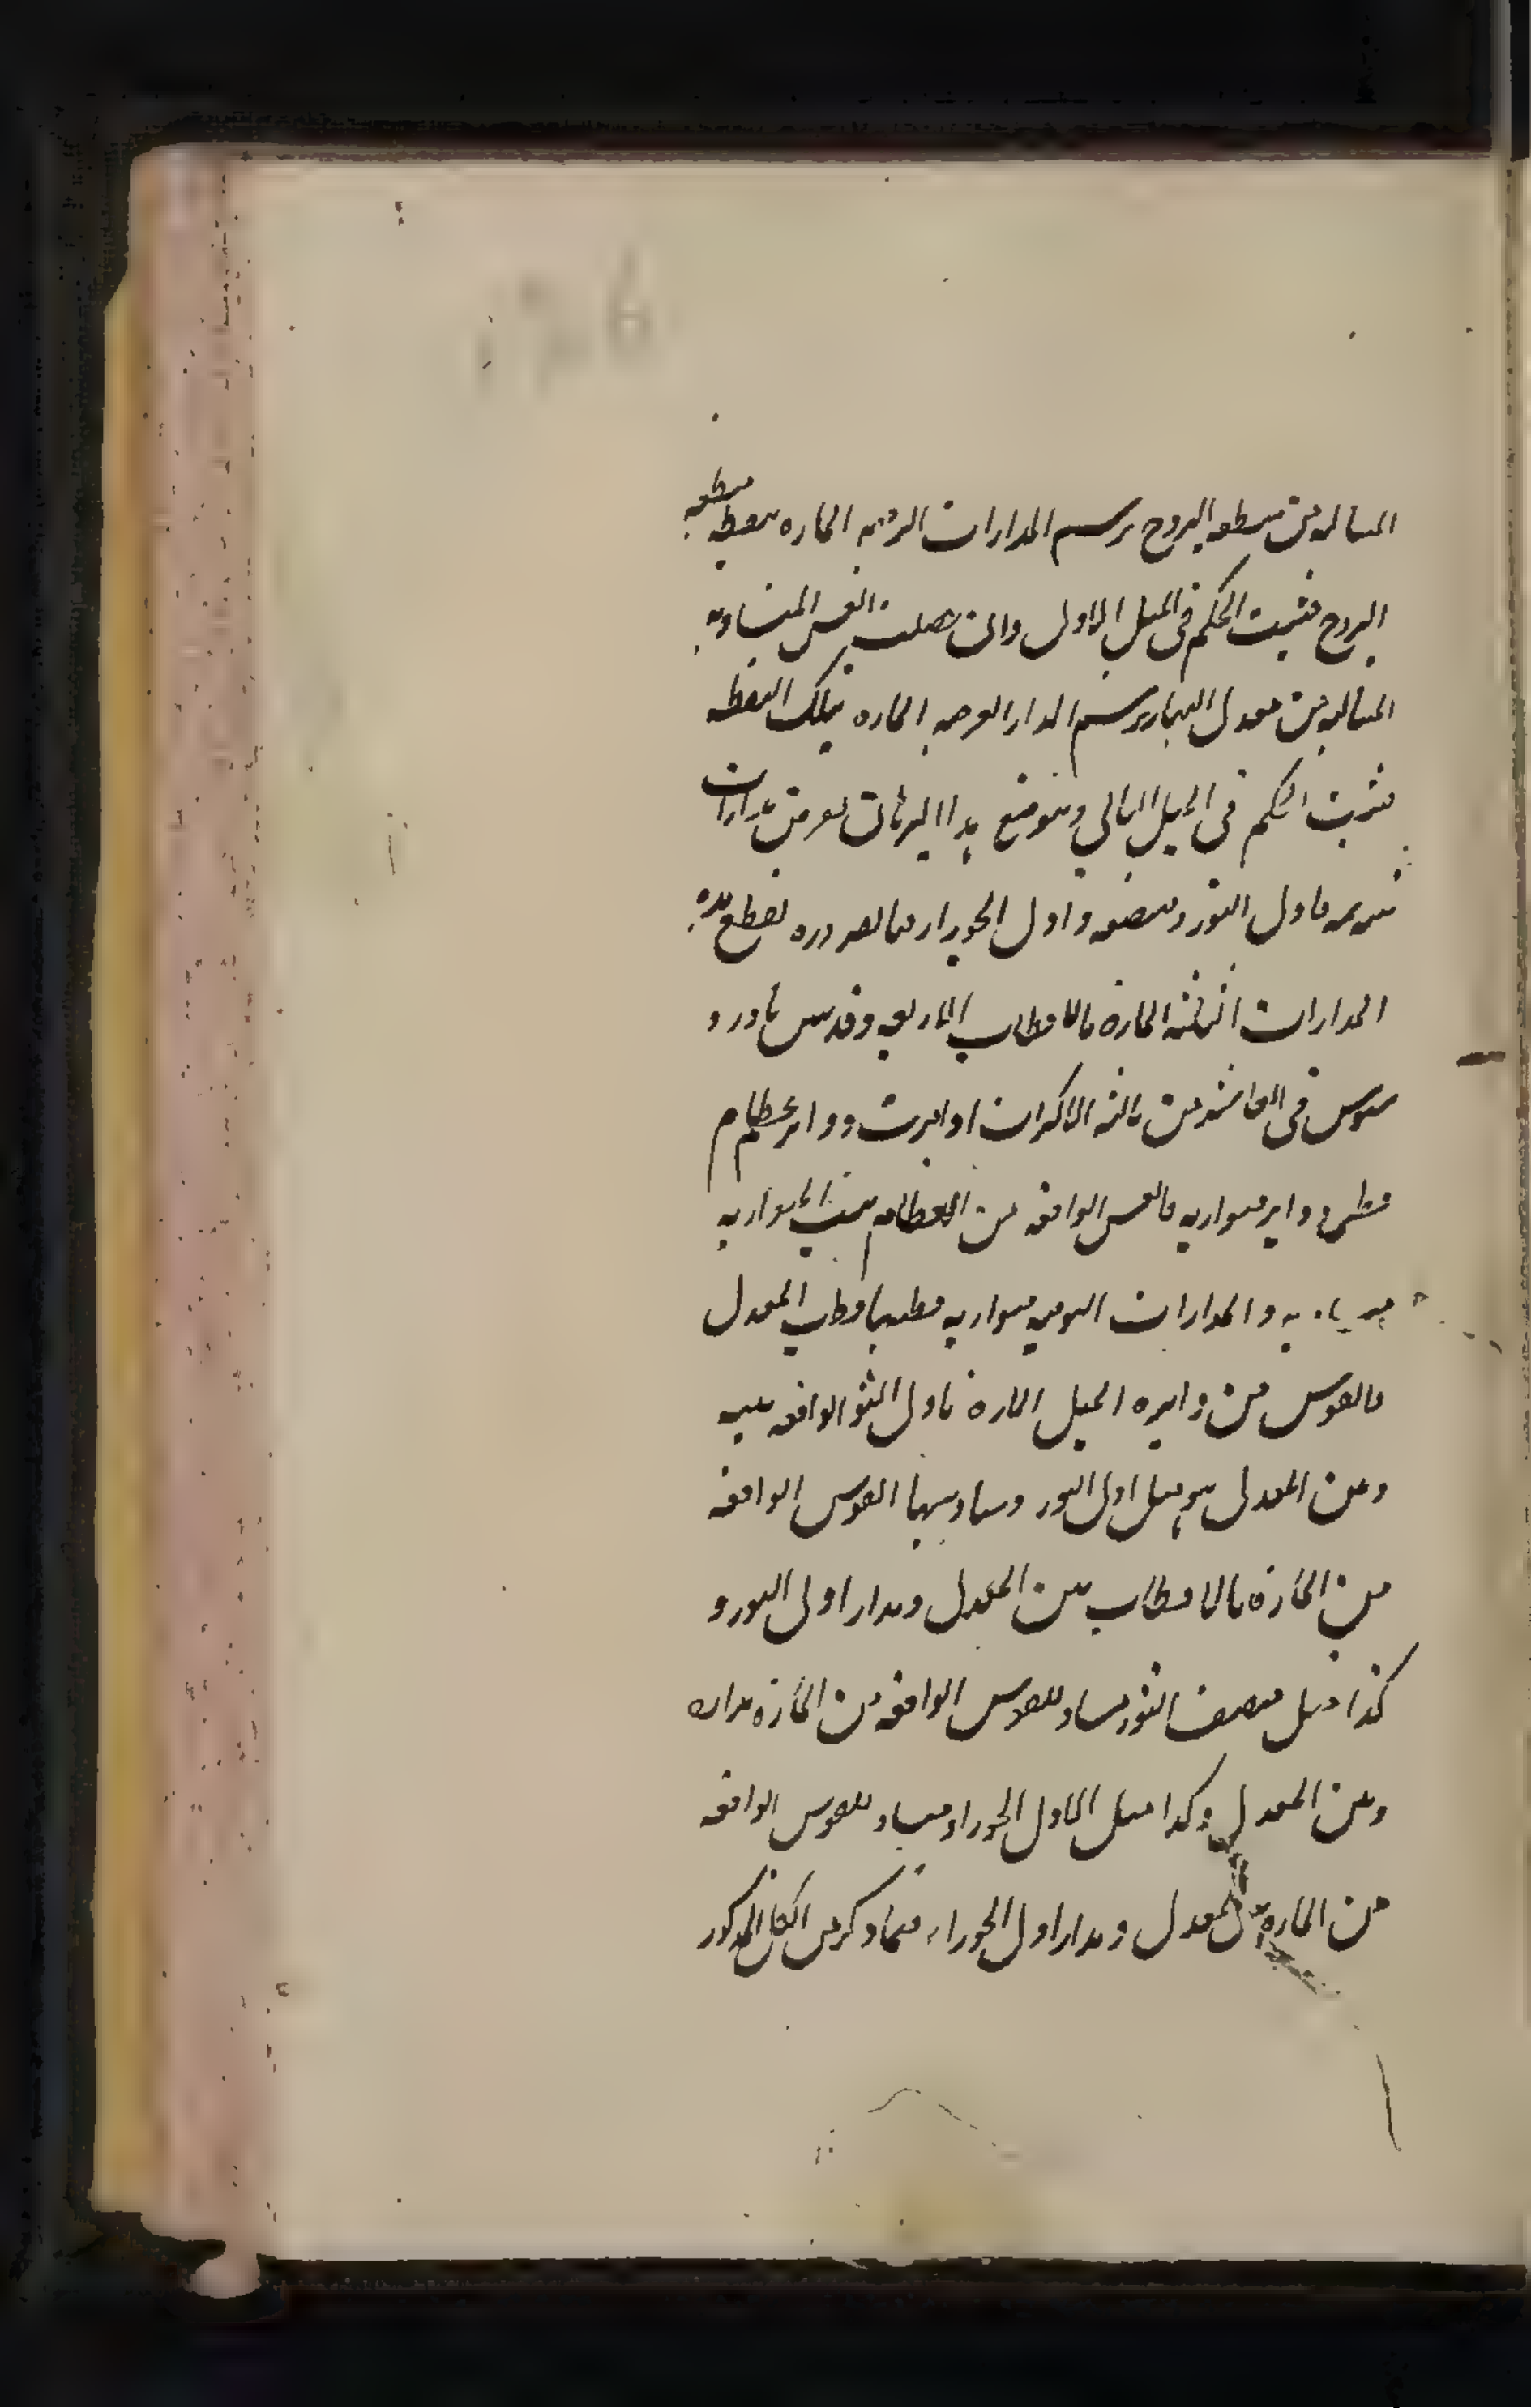 المتتالية من منطقة البروج برسم المدارات اليومية المارة بنقطة منطقة
البروج فثبت الحكم في الميل الاول وان فصلت القسي المتساوية
المتتالية من معدل النهار برسم المدار العرضية المارة بتلك النقطة
فثبت الحكم في الميل الثاني ولنوضع هذا البرهان لعرض مدارات
باول الثور ومنتصفه واول الجوزاء فبالضرورة تقطع هذه
المدارات الثلثة المارة بالاقطاب الاربعة وقد بين ثاودو
سيوس في العاشر من ثالثة الاكر ان اذا مرت دوائر عظام
بقطبي دواير متوازية فالقسي الواقعة من العظام بين المتوازية
متساوية والمدارات اليومية متوازية قطبها قطب المعدل
فالقوس من دايرة الميل المارة باول الثور الواقعة بينه
وبين المعدل هو ميل اول الثور ويساويها القوس الواقعة
من المارة بالاقطاب بين المعدل ومدار اول الثور و
كذا ميل منتصف الثور مساو للقوس الواقعة من المارة مداره
وبين المعدل وكذا ميل اول الجوزاء مساو للقوس الواقعة
من المارة بين المعدل ومدار اول الجوزاء فبما ذكر من الشكل المذكور